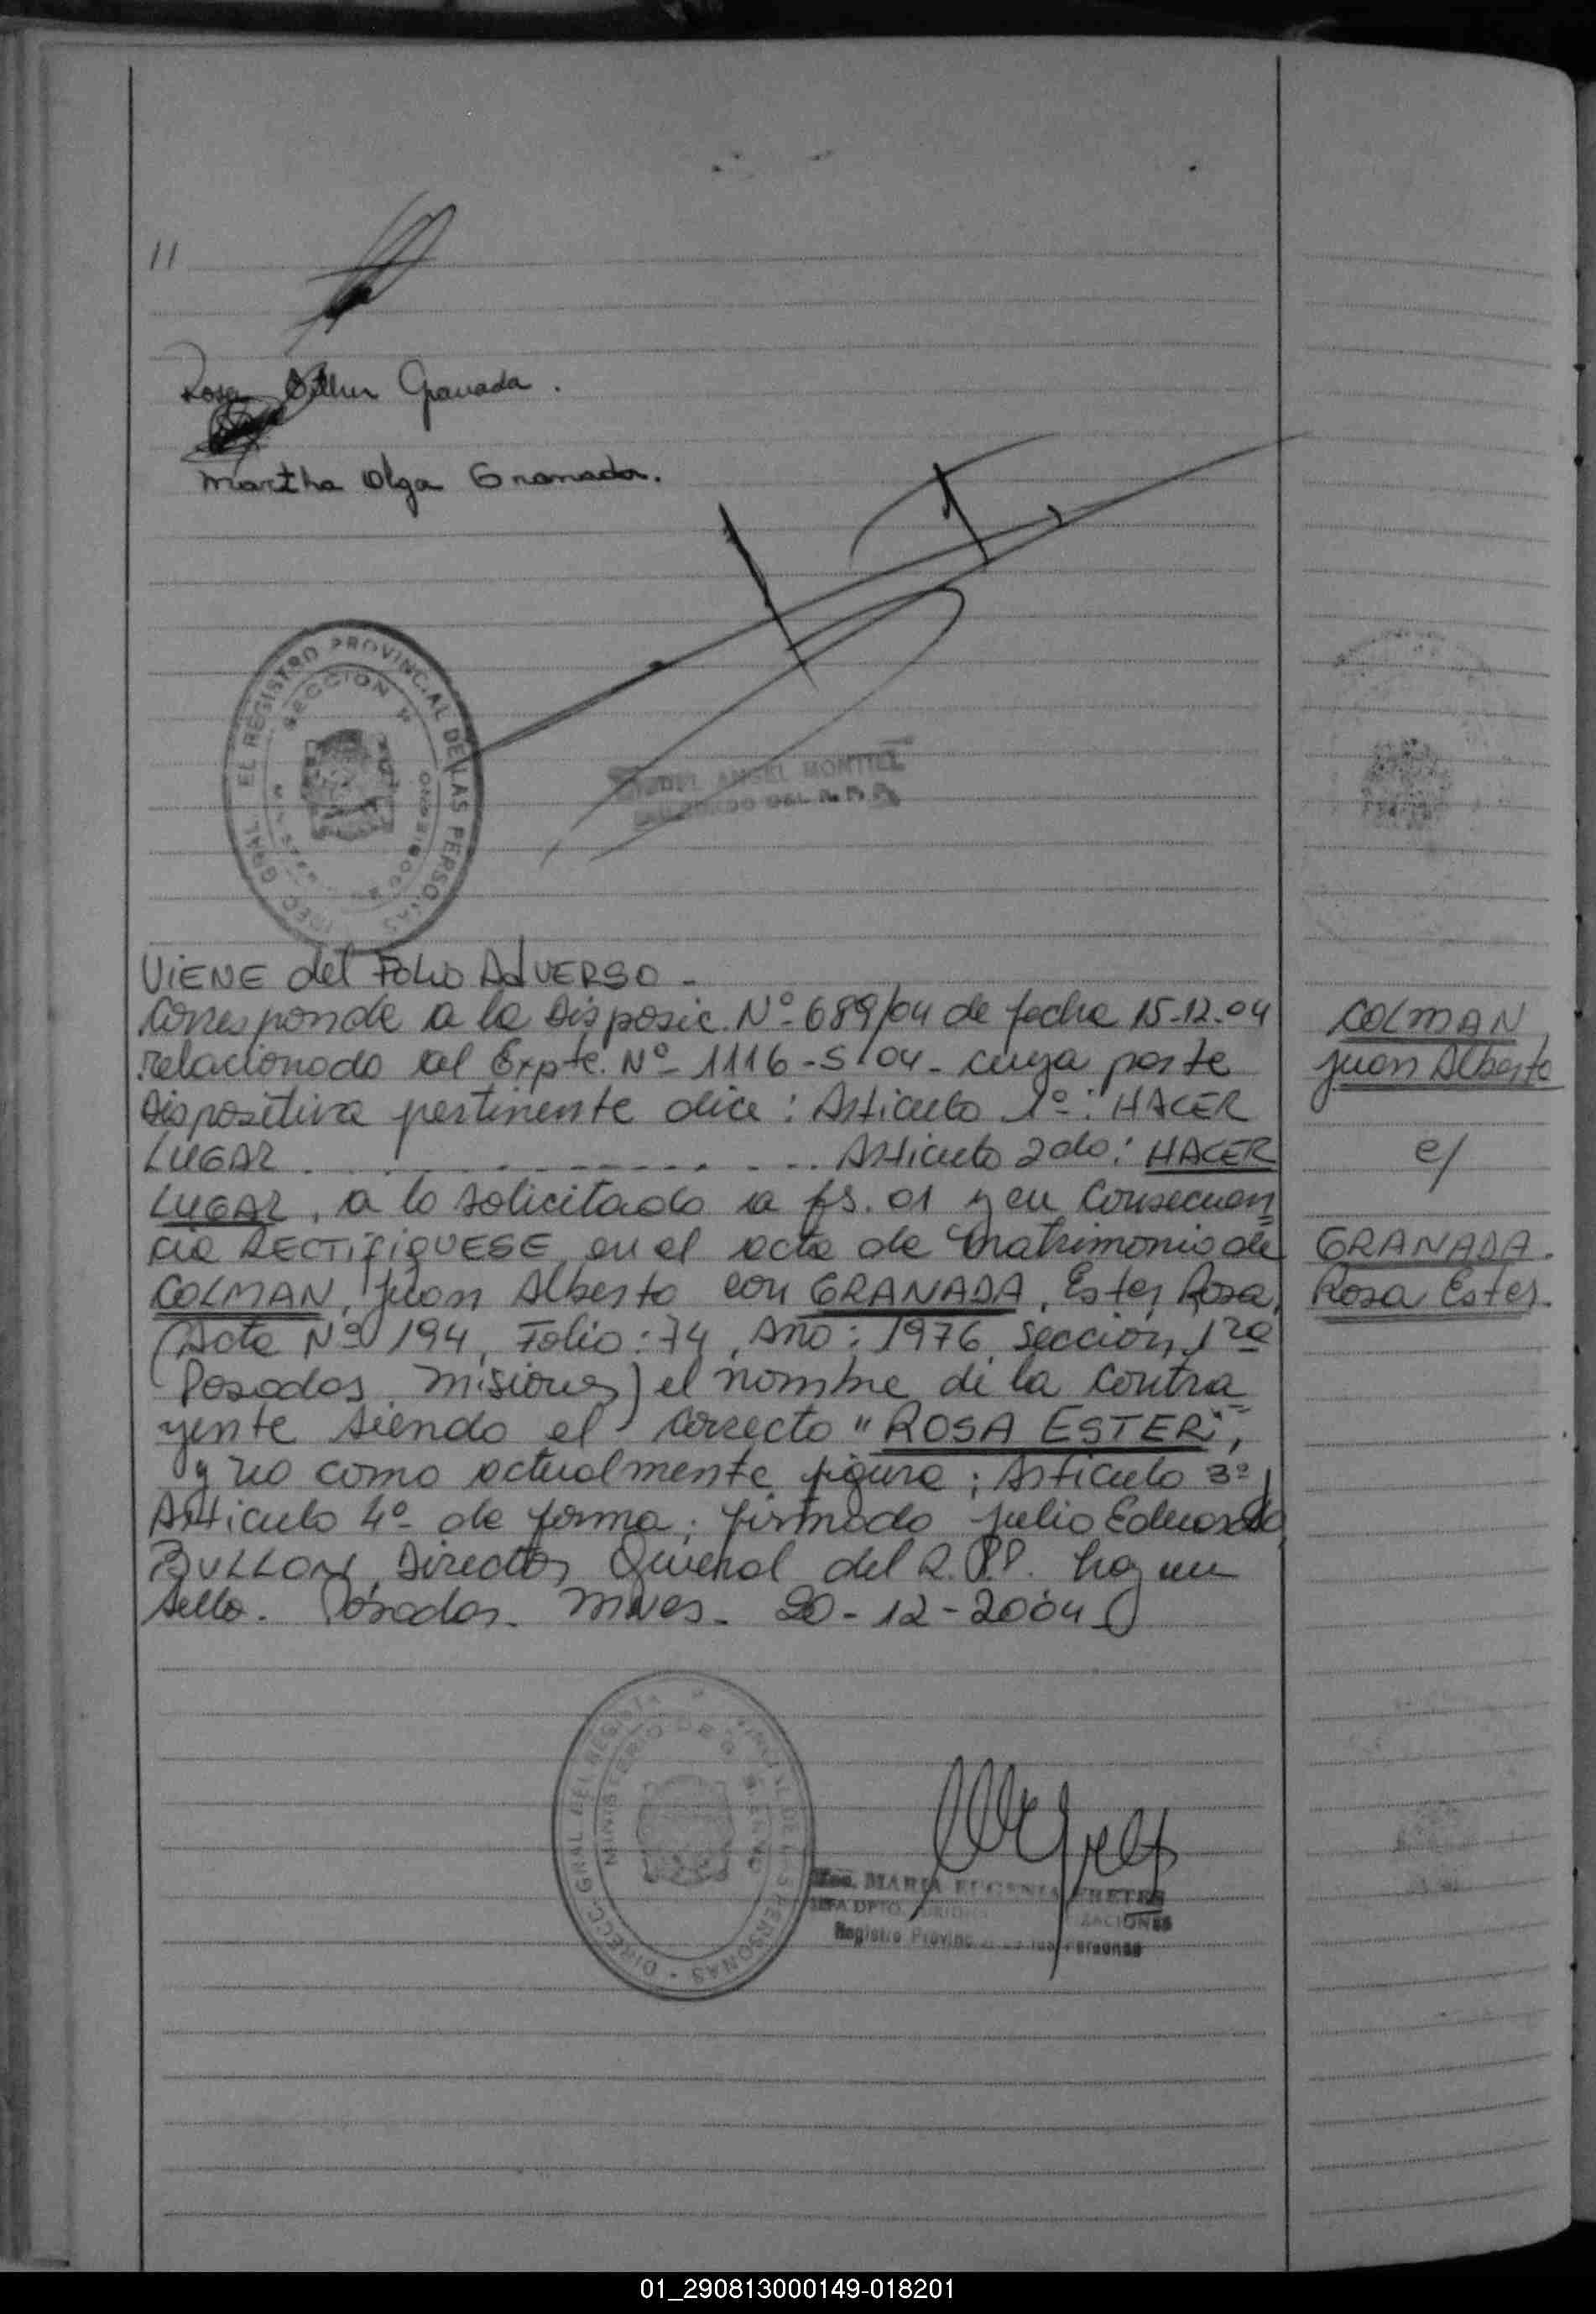 11
Rosa Esther Granada.
Martha Olga Granada.
EL REGISTRO PROVINCIAL DE LAS PERSONAS
SECCION
ANGEL MONTIEL
DEL R. P. P.
VIENE del FOLIO AdVERSO -
Corresponde a la Disposic. Nº 689/04 de fecha 15-12-04
relacionado al Expte. Nº - 1116 - S - 04 - cuya parte
Dispositiva pertinente dice: Articulo 1º: HACER
LUGAR . - - - - - - - - - - - . . Articulo 2do: HACER
LUGAR, a lo solicitado a fs. 01 y en Consecuen=
cia RECTIFIQUESE en el acta de Matrimonio de
COLMAN, Juan Alberto con GRANADA, Ester Rosa,
(Acta Nº 194, Folio: 74, Año: 1976 Sección 1ra
Posadas Misiones) el nombre de la Contra
yente siendo el correcto "ROSA ESTER",
y no como actualmente figura; Articulo 3º
Articulo 4º de forma; firmado Julio Eduardo
BULLON, Director General del R.P.P. hay un
sello. Posadas. Mnes. 20-12-2004
COLMAN
Juan Alberto
c/
GRANADA.
Rosa Ester.
DIRECC. GRAL DEL REGISTRO PROVINCIAL DE LAS PERSONAS
MINISTERIO DE GOBIERNO
MARIA EUGENIA FRETES
JEFA DPTO.
Registro Provinc de las Personas
01_290813000149-018201